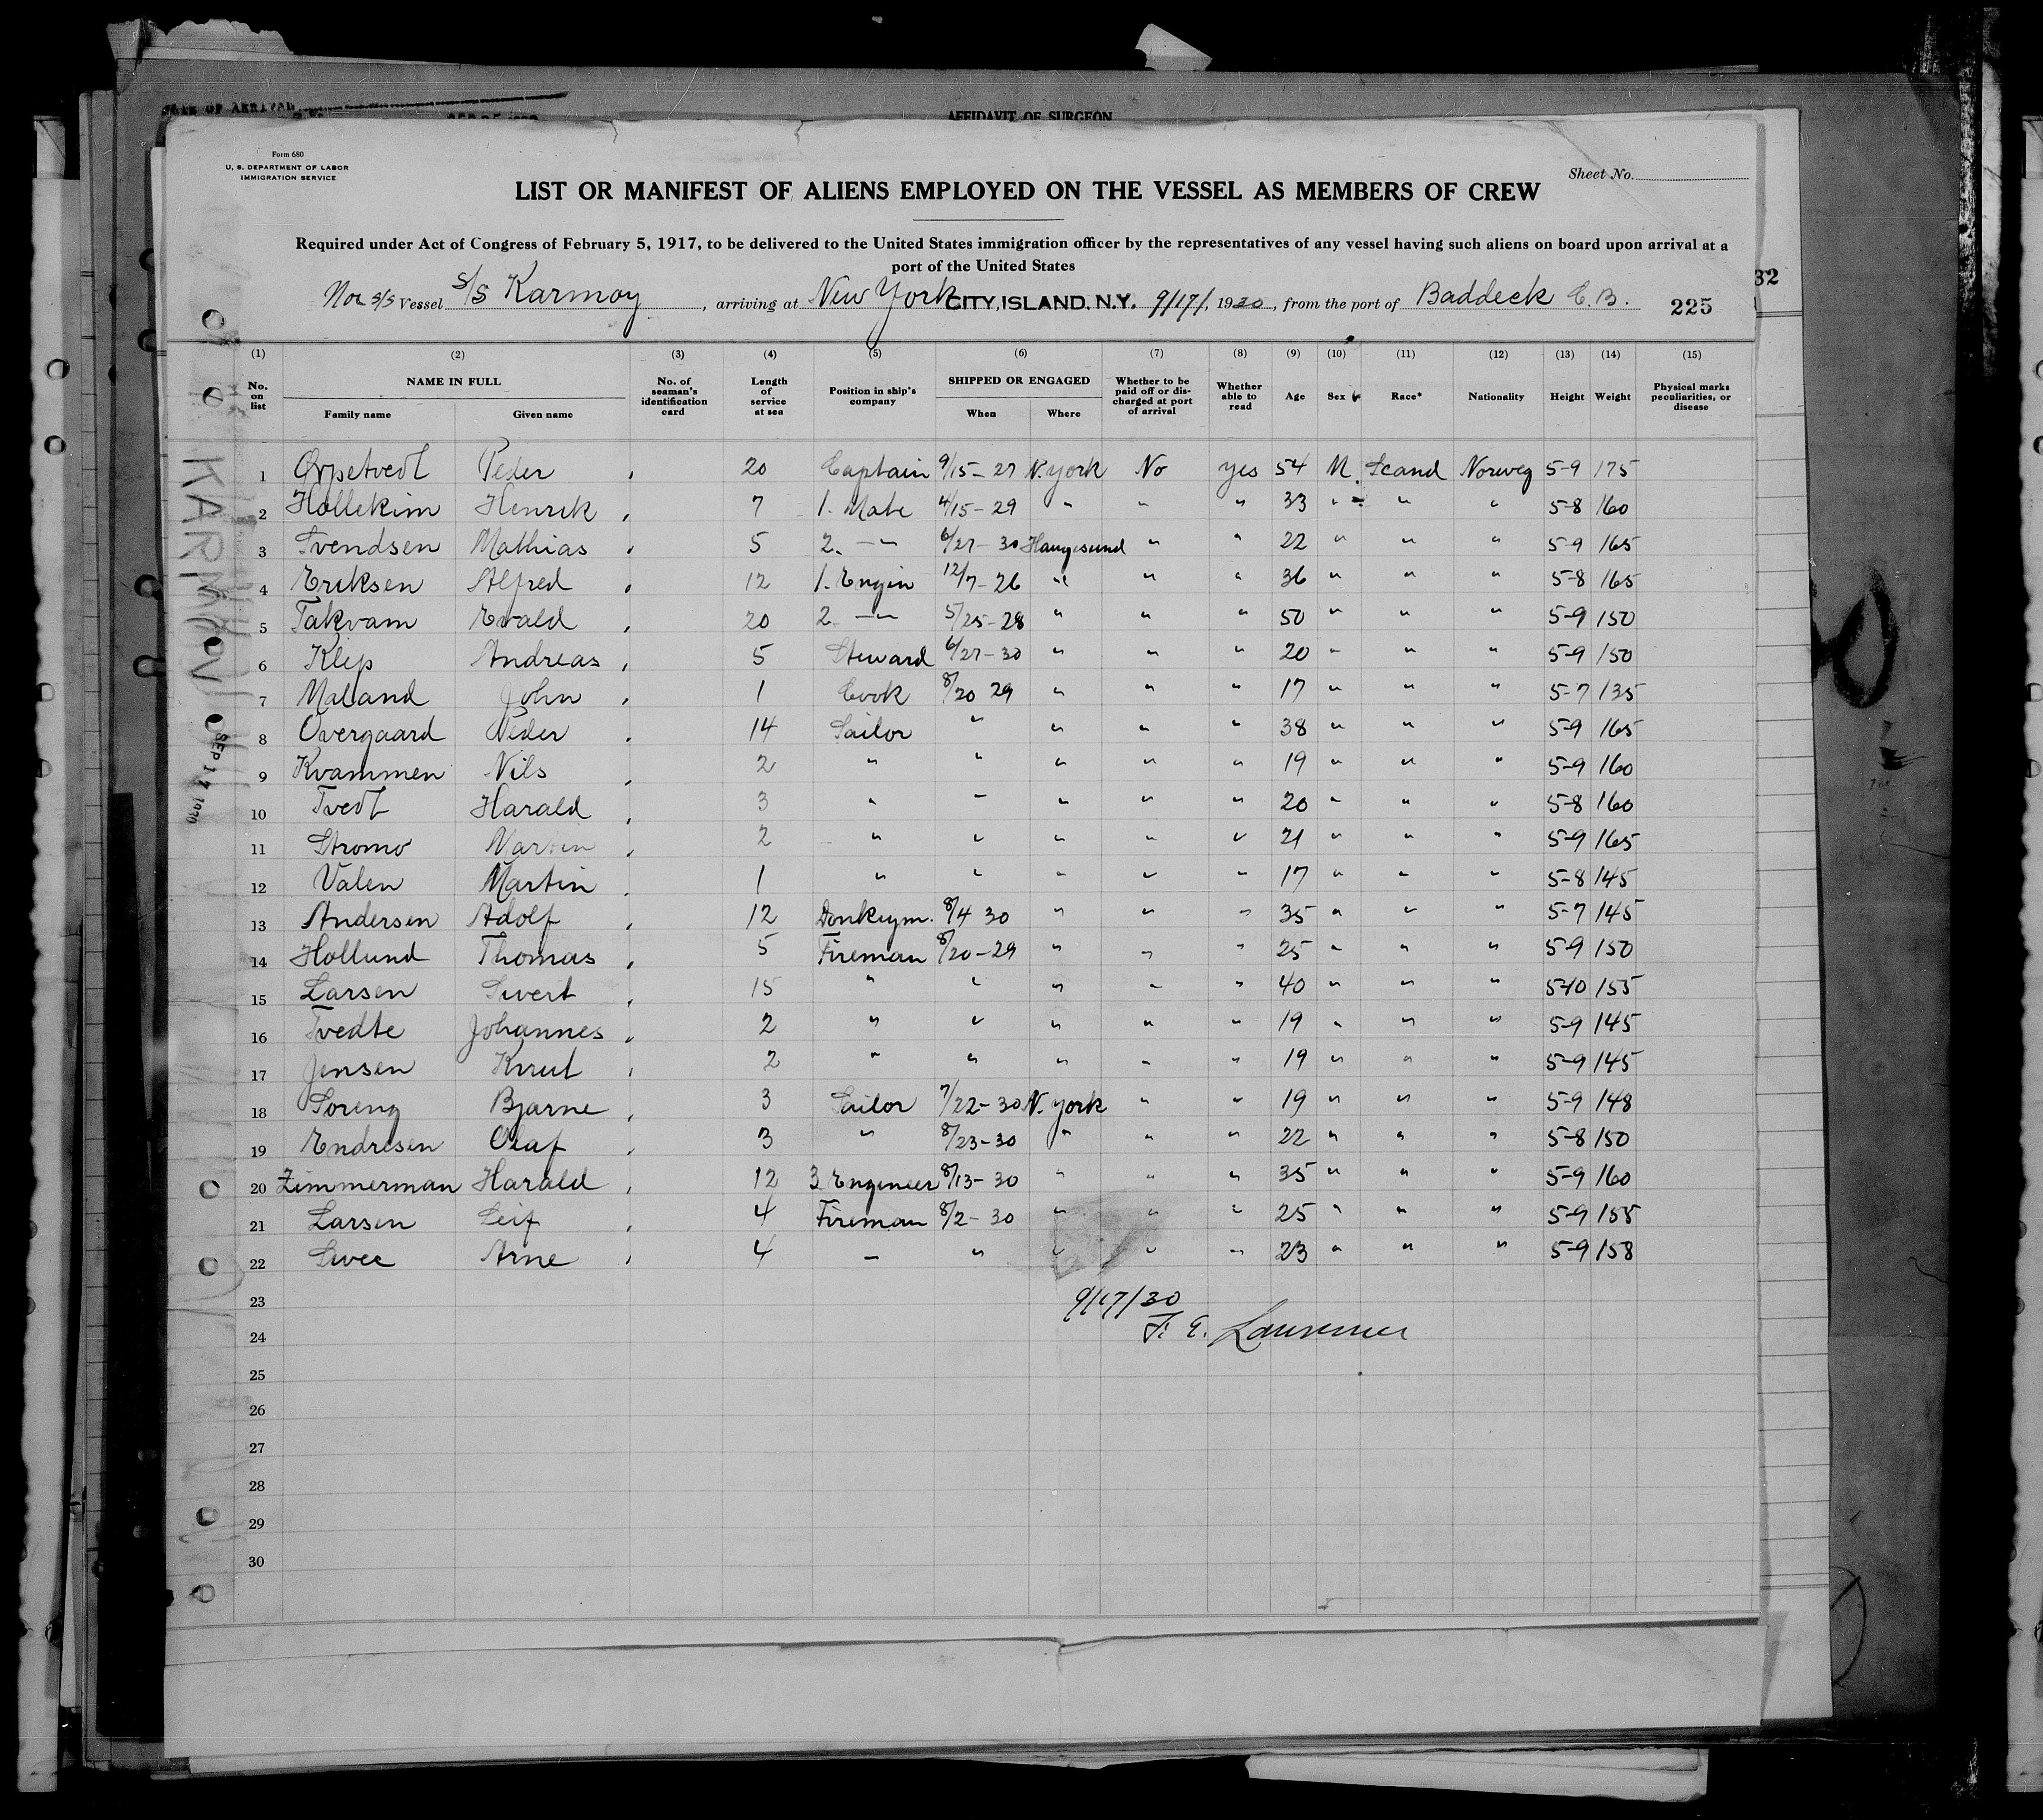 DATE OF ARRIVAL
AFFIDAVIT OF SURGEON
Form 680
U. S. DEPARTMENT OF LABOR
IMMIGRATION SERVICE
Sheet No.
LIST OR MANIFEST OF ALIENS EMPLOYED ON THE VESSEL AS MEMBERS OF CREW
Required under Act of Congress of February 5, 1917, to be delivered to the United States immigration officer by the representatives of any vessel having such aliens on board upon arrival at a
port of the United States
32
Nor S/S Vessel S/S Karmoy, arriving at New York CITY, ISLAND. N.Y. 9/17/, 1930, from the port of Baddeck C.B. 225
(1) (2) (3) (4) (5) (6) (7) (8) (9) (10) (11) (12) (13) (14) (15)
No. on list NAME IN FULL Family name Given name No. of seaman's identification card Length of service at sea Position in ship's company SHIPPED OR ENGAGED When Where Whether to be paid off or discharged at port of arrival Whether able to read Age Sex Race* Nationality Height Weight Physical marks peculiarities, or disease
1 Peder 20 Captain 9/15-27 N.York No yes 54 M. Scand Norweg 5-9 175
2 Hollekim Henrik 7 1. Mate 4/15-29 " " " 33 " " " 5-8 160
3 Svendsen Mathias 5 2. -"- 6/27-30 Haugesund " " 22 " " " 5-9 165
4 Eriksen Alfred 12 1. Engin 12/7-26 " " " 36 " " " 5-8 165
5 Takvam Evald 20 2. -"- 5/25-28 " " " 50 " " " 5-9 150
6 Klep Andreas 5 Steward 6/27-30 " " " 20 " " " 5-9 150
7 Maland John 1 Cook 8/20 29 " " " 17 " " " 5-7 135
8 Overgaard Peder 14 Sailor " " " " 38 " " " 5-9 165
9 Kvammen Nils 2 " " " " " 19 " " " 5-9 160
10 Tvedt Harald 3 " " " " " 20 " " " 5-8 160
11 Stromo Martin 2 " " " " " 21 " " " 5-9 165
12 Valen Martin 1 " " " " " 17 " " " 5-8 145
13 Andersen Adolf 12 Donkeym. 8/4 30 " " " 35 " " " 5-7 145
14 Hollund Thomas 5 Fireman 8/20-29 " " " 25 " " " 5-9 150
15 Larsen Sivert 15 " " " " " 40 " " " 5-10 155
16 Tvedte Johannes 2 " " " " " 19 " " " 5-9 145
17 Jensen Knut 2 " " " " " 19 " " " 5-9 145
18 Soreng Bjarne 3 Sailor 7/22-30 N.York " " 19 " " " 5-9 148
19 Endresen Olaf 3 " 8/23-30 " " " 22 " " " 5-8 150
20 Zimmerman Harald 12 3 Engineer 8/13-30 " " " 35 " " " 5-9 160
21 Larsen Leif 4 Fireman 8/2-30 " " " 25 " " " 5-9 155
22 Arne 4 - " " " " 23 " " " 5-9 158
23
9/17/30
24
25
26
27
28
29
30
KARMOY
SEP 17 1930